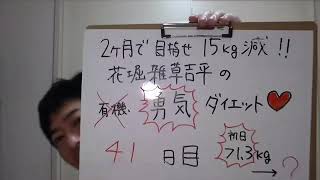 2ヶ月で目指せ 15kg減!!
花堀雑草吉平の
有機 勇気 ダイエット♥
41日目 初日 71.3kg → ?